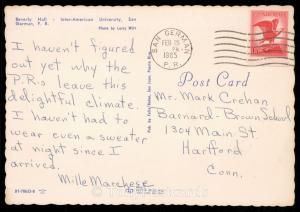 Beverly Hall - Inter-American University, San
German, P. R.
Photo by Larry Witt
I haven't figured
out yet why the
P.R.s leave this
delightful climate.
I haven't had to
wear even a sweater
at night since I
arrived.
Mille Marchese
SAN GERMAN
FEB 15
PM
1965
P.R.
Post Card
Mr. Mark Crehan
Barnard-Brown School
1304 Main St
Hartford
Conn.